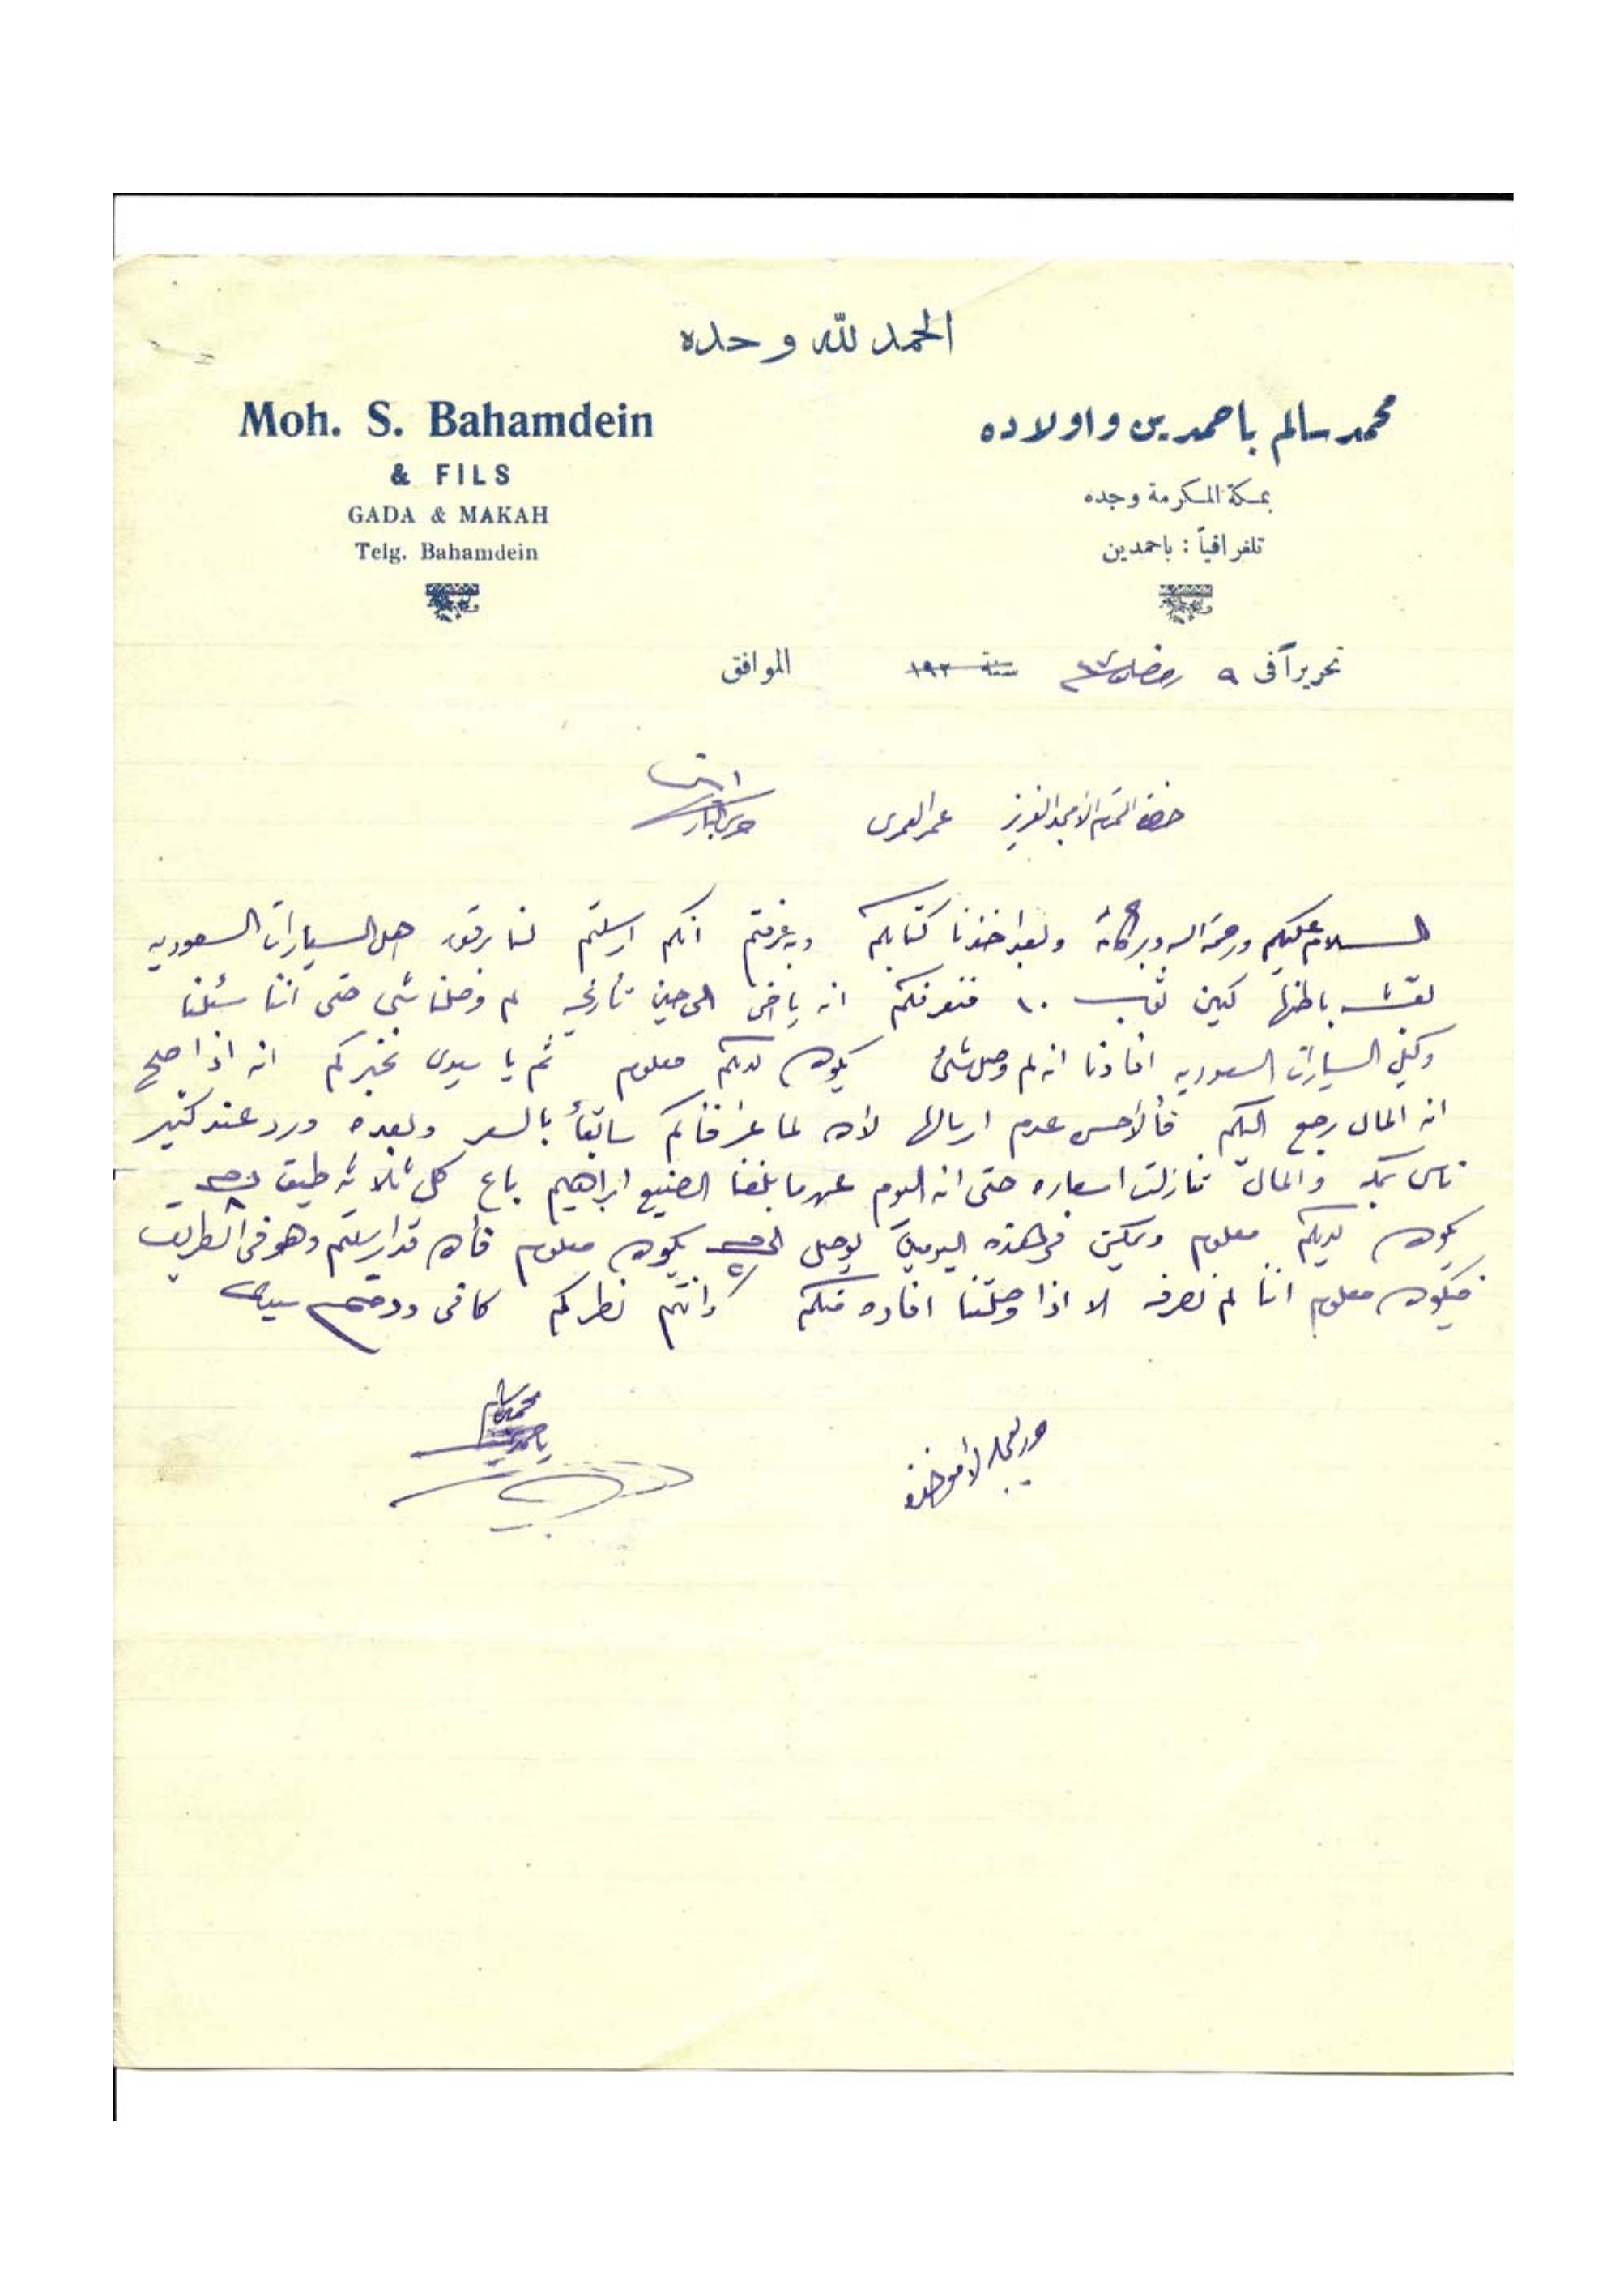 الحمد لله وحده
Moh. S. Bahamdein
& FILS
GADA & MAKAH
Telg. Bahamdein
محمد سالم باحمدين واولاده
بمكة المكرمة وجده
تلغرافياً : باحمدين
تحريراً في ٩ رمضان سنة ١٩٢ الموافق
حضرة المكرم الأمجد العزيز عمر العمرى
السلام عليكم ورحمة الله وبركاته وبعد اخذنا كتابكم وبه عرفتم انكم ارسلتم لنا برفق السيارات السعوديه
باطنها كيس ١٠ فنعرفكم انه يا اخي الى حين تاريخه لم وصلنا شي حتى اننا سئلنا
وكيل السيارات السعوديه افادنا انه لم وصل شئ يكون لديكم معلوم ثم يا سيدى نخبركم انه اذا صح
انه المال رجع اليكم فالأحسن عدم ارسالها لأن لما عرفناكم سابقاً بالسعر وبعده ورد عند كثير
ناس بمكه والمال تنازلت اسعاره حتى انه اليوم بلغنا الصنيع ابراهيم باع كل ثلاثة
يكون لديكم معلوم ويمكن في هذه اليومين يوصل الى يكون معلوم فان قد ارسلتم وهو فى الطريق
فيكون معلوم اننا لم نصرفه الا اذا وصلتنا افاده منكم وانتم نظركم كافى ودمتم
محمد سالم
باحمدين